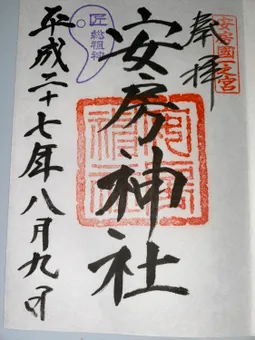 奉拝
安房國一之宮
安房神社
匠総祖神
平成二十七年八月九日